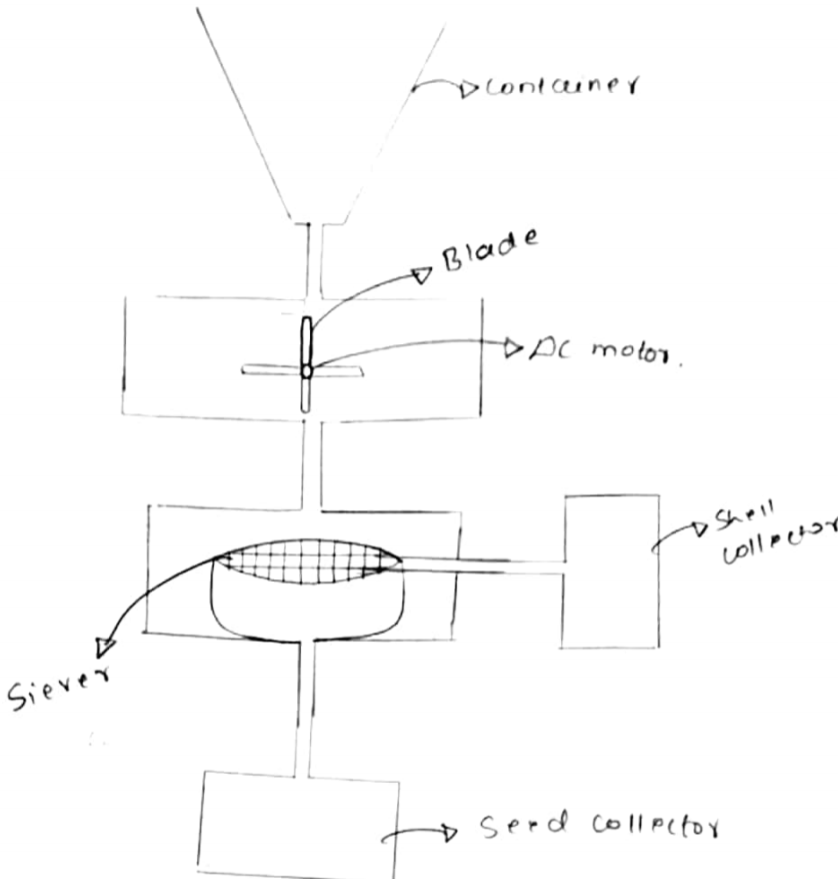 Container
Blade
DC motor.
Shell
collector
Siever
Seed collector